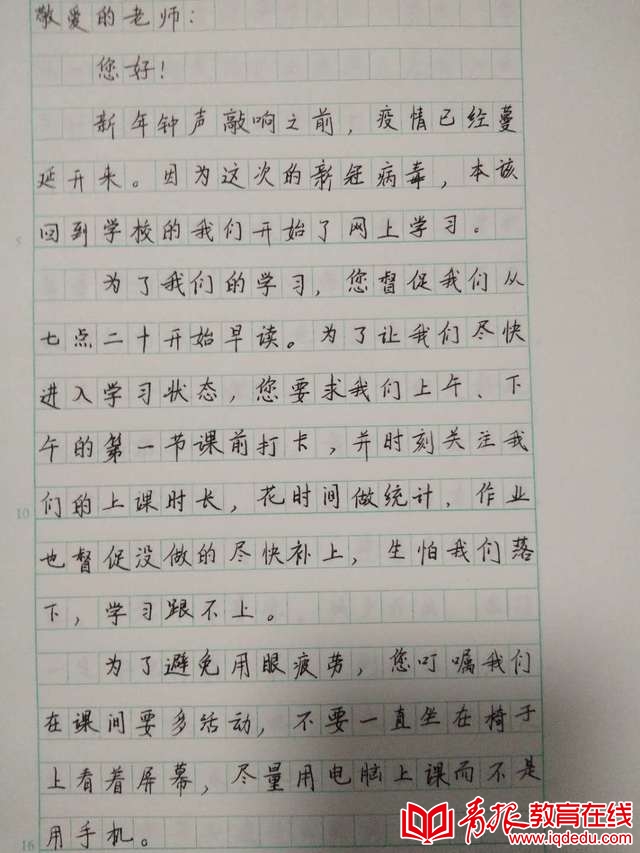 敬爱的老师:
您好!
新年钟声敲响之前,疫情已经蔓
延开来。因为这次的新冠病毒,本该
回到学校的我们开始了网上学习。
为了我们的学习,您督促我们从
七点二十开始早读。为了让我们尽快
进入学习状态,您要求我们上午、下
午的第一节课前打卡,并时刻关注我
们的上课时长,花时间做统计,作业
也督促没做的尽快补上,生怕我们落
下,学习跟不上。
为了避免用眼疲劳,您叮嘱我们
在课间要多活动,不要一直坐在椅子
上看着屏幕,尽量用电脑上课而不是
用手机。
5
10
16
青报教育在线
www.iqdedu.com